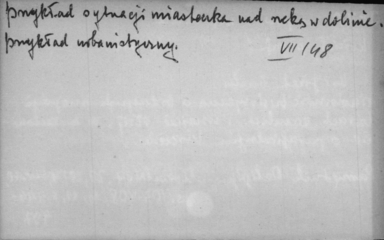 przykład sytuacji miasteczka nad rzeką w dolinie.
przykład urbanistyczny.
VII/48